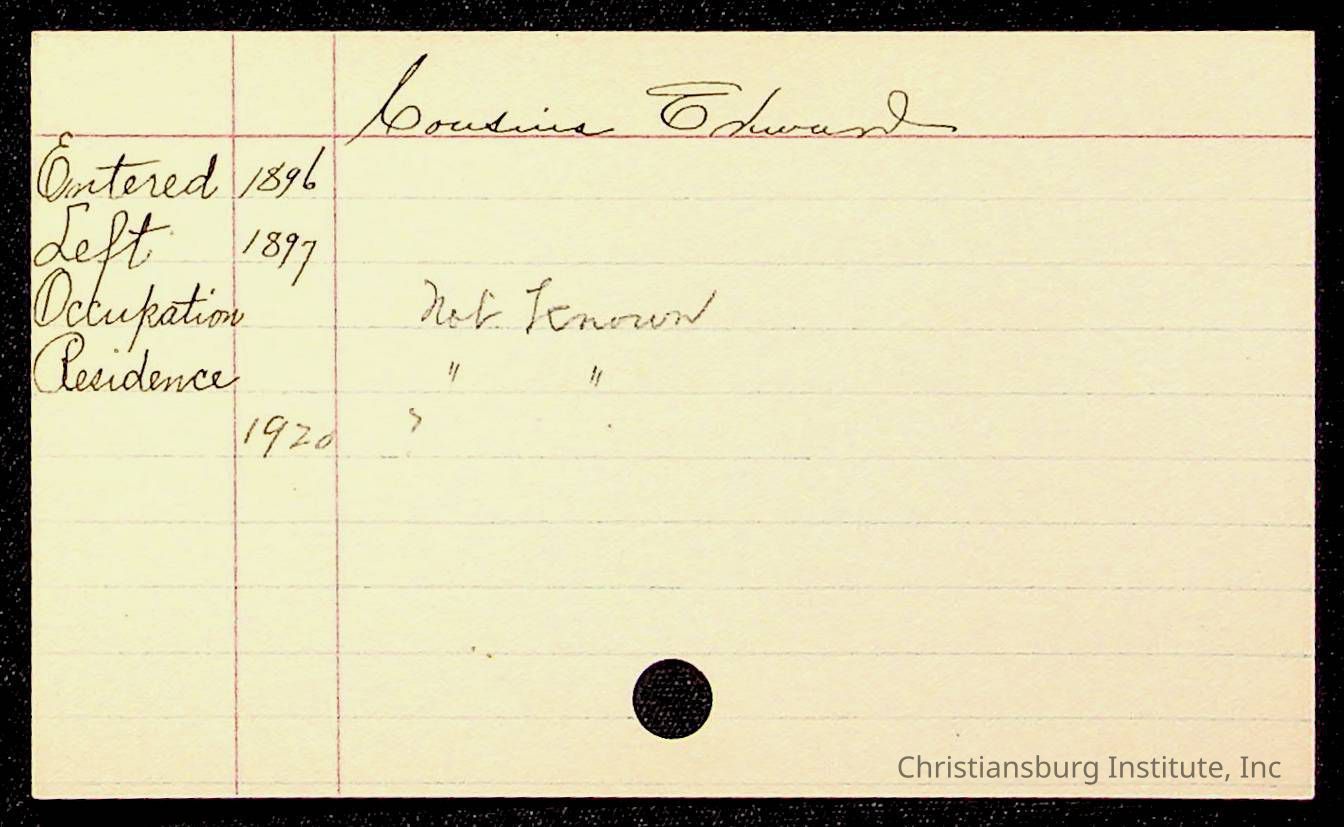 Cousins Edward
Entered 1896
Left 1897
Occupation Not Known
Residence " "
1920 ?
Christiansburg Institute, Inc